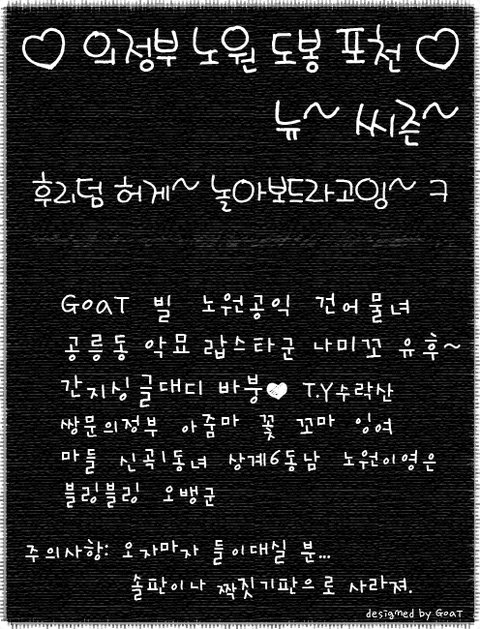 ♡ 의정부 노원 도봉 포천 ♡
뉴~ 씨즌~
후리덤 허게~ 놀아보드라고잉~ ㅋ
GoaT 빌 노원공익 건어물녀
공릉동 악묘 랍스타군 나미꼬 유후~
간지싱글대디 바붕♥ T.Y수락산
쌍문의정부 아줌마 꽃 꼬마 잉여
마들 신곡1동녀 상계6동남 노원이영은
블링블링 오뱅군
주의사항: 오자마자 들이대실 분...
솔판이나 짝짓기판으로 사라져.
designed by GoaT